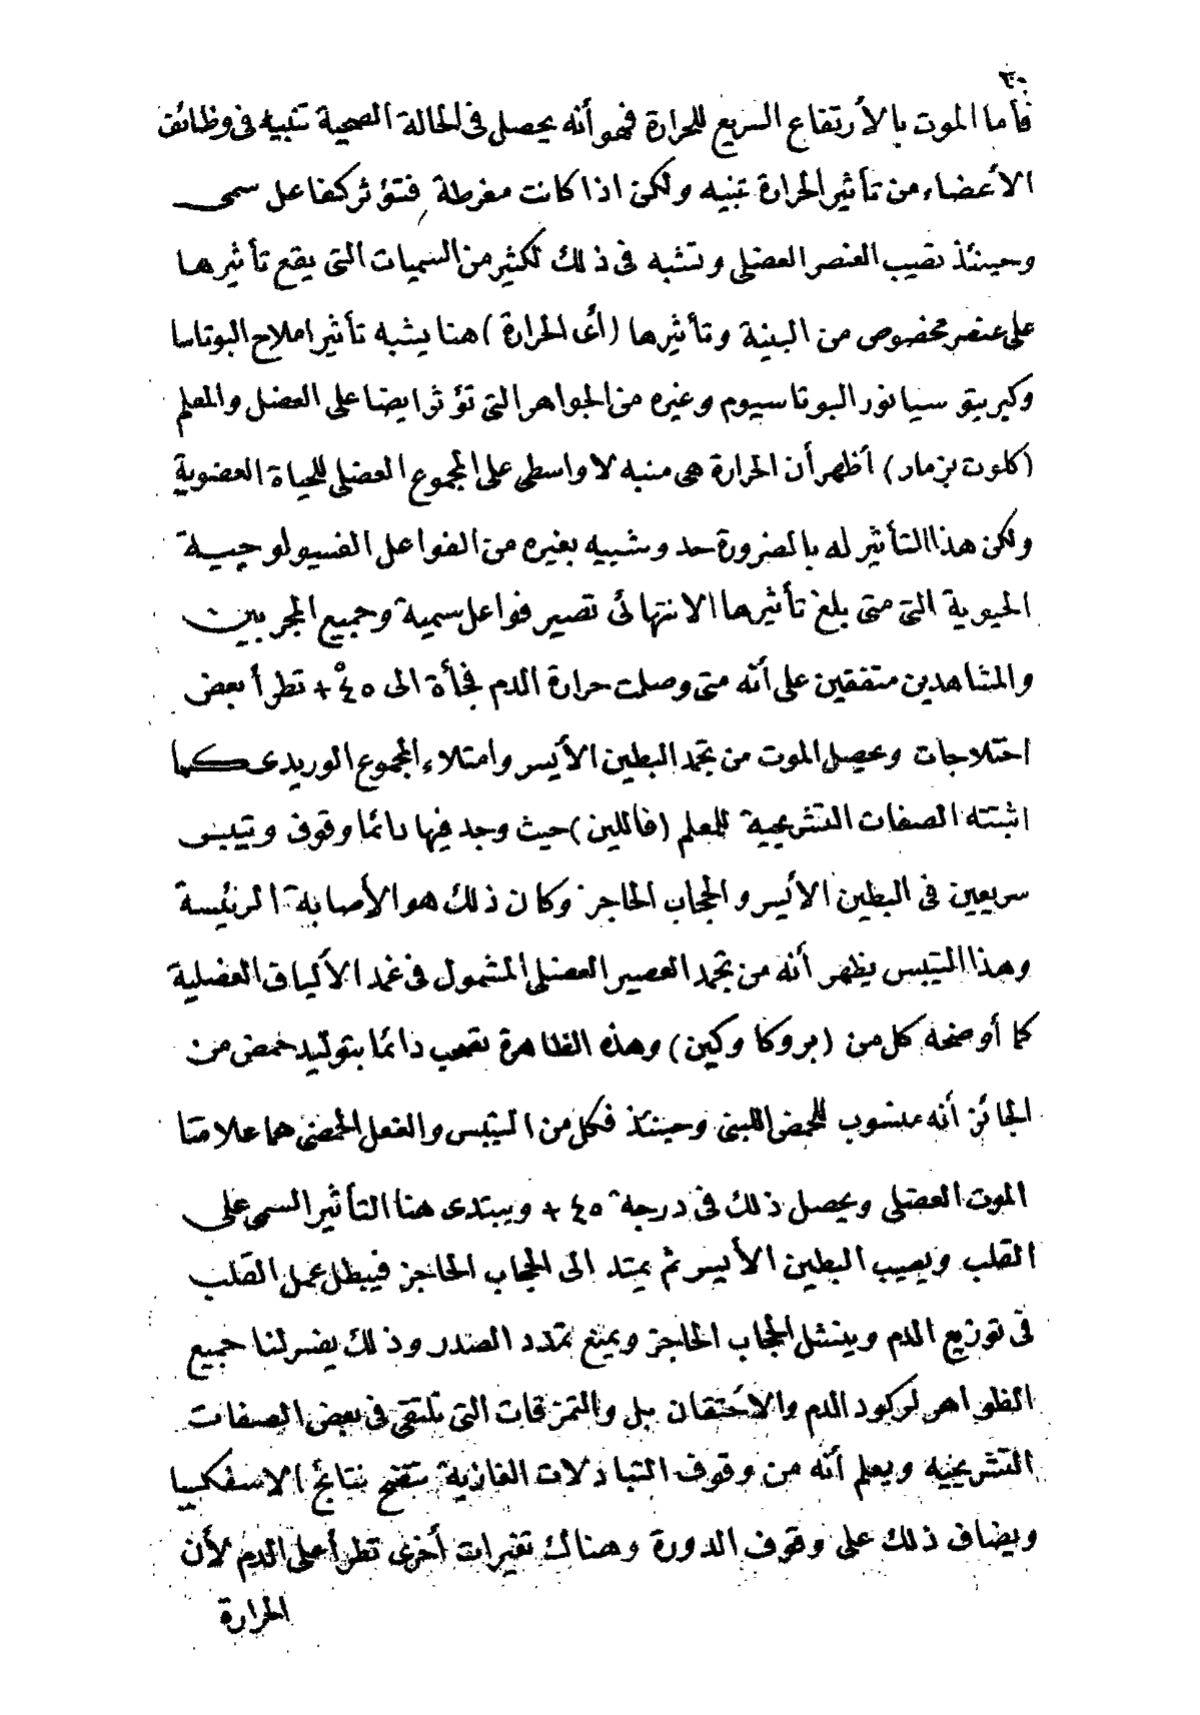 ٣٠
فأما الموت بالأرتفاع السريع للحرارة فهو أنه يحصل فى الحالة الصحية تنبيه فى وظائف
الأعضاء من تأثير الحرارة تنبيه ولكن اذا كانت مفرطة فتؤثر كفاعل سمى
وحينئذ تصيب العنصر العضلى وتشبه فى ذلك لكثير من السميات التى يقع تأثيرها
على عنصر مخصوص من البنية وتأثيرها (أى الحرارة) هنا يشبه تأثير املاح البوتاسا
وكبريتو سيانور البوتاسيوم وغيره من الجواهر التى تؤثر ايضا على العضل والمعلم
(كلوت بزمار) أظهر أن الحرارة هى منبه لا واسطى على المجموع العضلى للحياة العضوية
ولكن هذا التأثير له بالضرورة حد وشبيه بغيره من الفواعل الفسيولوجية
الحيوية التى متى بلغ تأثيرها الانتهائى تصير فواعل سمية وجميع المجربين
والمشاهدين متفقين على أنه متى وصلت حرارة الدم فجأة الى ٤٥° + تطرأ بعض
اختلاجات ويحصل الموت من تجمد البطين الأيسر وامتلاء المجموع الوريدى كما
اثبتته الصفات التشريحية للمعلم (فاللين) حيث وجد فيها دائما وقوف وتيبس
سريعين فى البطين الأيسر والحجاب الحاجز وكان ذلك هو الأصابة الرئيسة
وهذا التيبس يظهر أنه من تجمد العصير العضلى المشمول فى غمد الألياف العضلية
كما أوضحه كل من (بروكا وكين) وهذه الظاهرة تصحب دائما بتوليد حمض من
الجائز أنه منسوب للحمض اللبنى وحينئذ فكل من التيبس والفعل الحمضى هما علامتا
الموت العضلى ويحصل ذلك فى درجة ٤٥ + ويبتدى هنا التأثير السمى على
القلب ويصيب البطين الأيسر ثم يمتد الى الحجاب الحاجز فيبطل عمل القلب
فى توزيع الدم وينشل الحجاب الحاجز ويمنع تمدد الصدر وذلك يفسر لنا جميع
الظواهر لركود الدم والأحتقان بل والتمزقات التى تلتقى فى بعض الصفات
التشريحيه ويعلم أنه من وقوف التبادلات الغازية تتضح نتائج الاسفكسيا
ويضاف ذلك على وقوف الدورة وهناك تغيرات أخرى تطرأ على الدم لأن
الحرارة